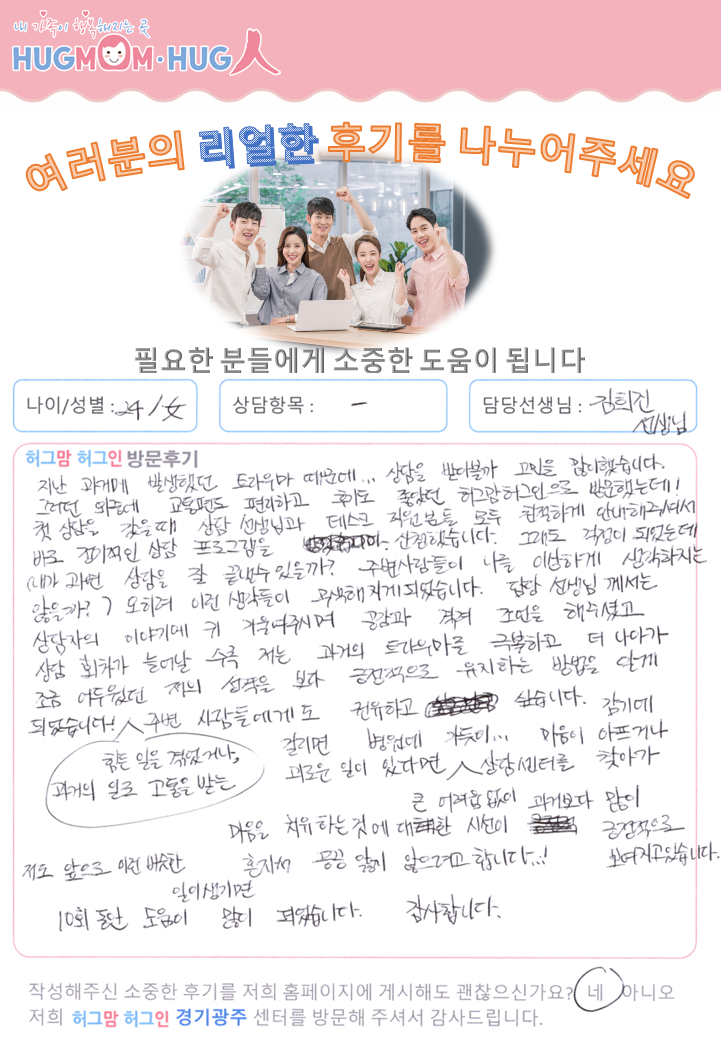 내 가족이 행복해지는 곳
HUGMOM·HUG人
여러분의 리얼한 후기를 나누어주세요
필요한 분들에게 소중한 도움이 됩니다
나이/성별 : 24 / 女
상담항목 : -
담당선생님 : 김희진 선생님
허그맘 허그인 방문후기
지난 과거에 발생했던 트라우마 때문에... 상담을 받아볼까 고민을 많이했습니다.
그러던 와중에 교통편도 편리하고 후기도 좋았던 허그맘허그인으로 방문했는데!
첫 상담을 갔을때 상담 선생님과 데스크 직원분들 모두 친절하게 안내해주셔서
바로 정기적인 상담 프로그램을 신청했습니다. 그래도 걱정이 되었는데
(내가 과연 상담을 잘 끝낼수 있을까? 주변사람들이 나를 이상하게 생각하지는
않을까?) 오히려 이런 생각들이 무색해지게 되었습니다. 담당 선생님 께서는
상담자의 이야기에 귀 기울여주시며 공감과 격려 조언을 해주셨고
상담 회차가 늘어날 수록 저는 과거의 트라우마를 극복하고 더 나아가
조금 어두웠던 저의 성격을 보다 긍정적으로 유지하는 방법을 알게
되었습니다! 주변 사람들에게도 권유하고 싶습니다. 감기에
힘든 일을 겪었거나,
과거의 일로 고통을 받는
걸리면 병원에 가듯이... 마음이 아프거나
괴로운 일이 있다면 상담센터를 찾아가
큰 어려움 없이 과거보다 많이
마음을 치유하는것에 대한 시선이 긍정적으로
보여지고있습니다.
저도 앞으로 이런 비슷한
일이생기면
혼자서 끙끙 앓지 않으려고 합니다..!
10회 동안 도움이 많이 되었습니다. 감사합니다.
작성해주신 소중한 후기를 저희 홈페이지에 게시해도 괜찮으신가요? 네 아니오
저희 허그맘 허그인 경기광주 센터를 방문해 주셔서 감사드립니다.